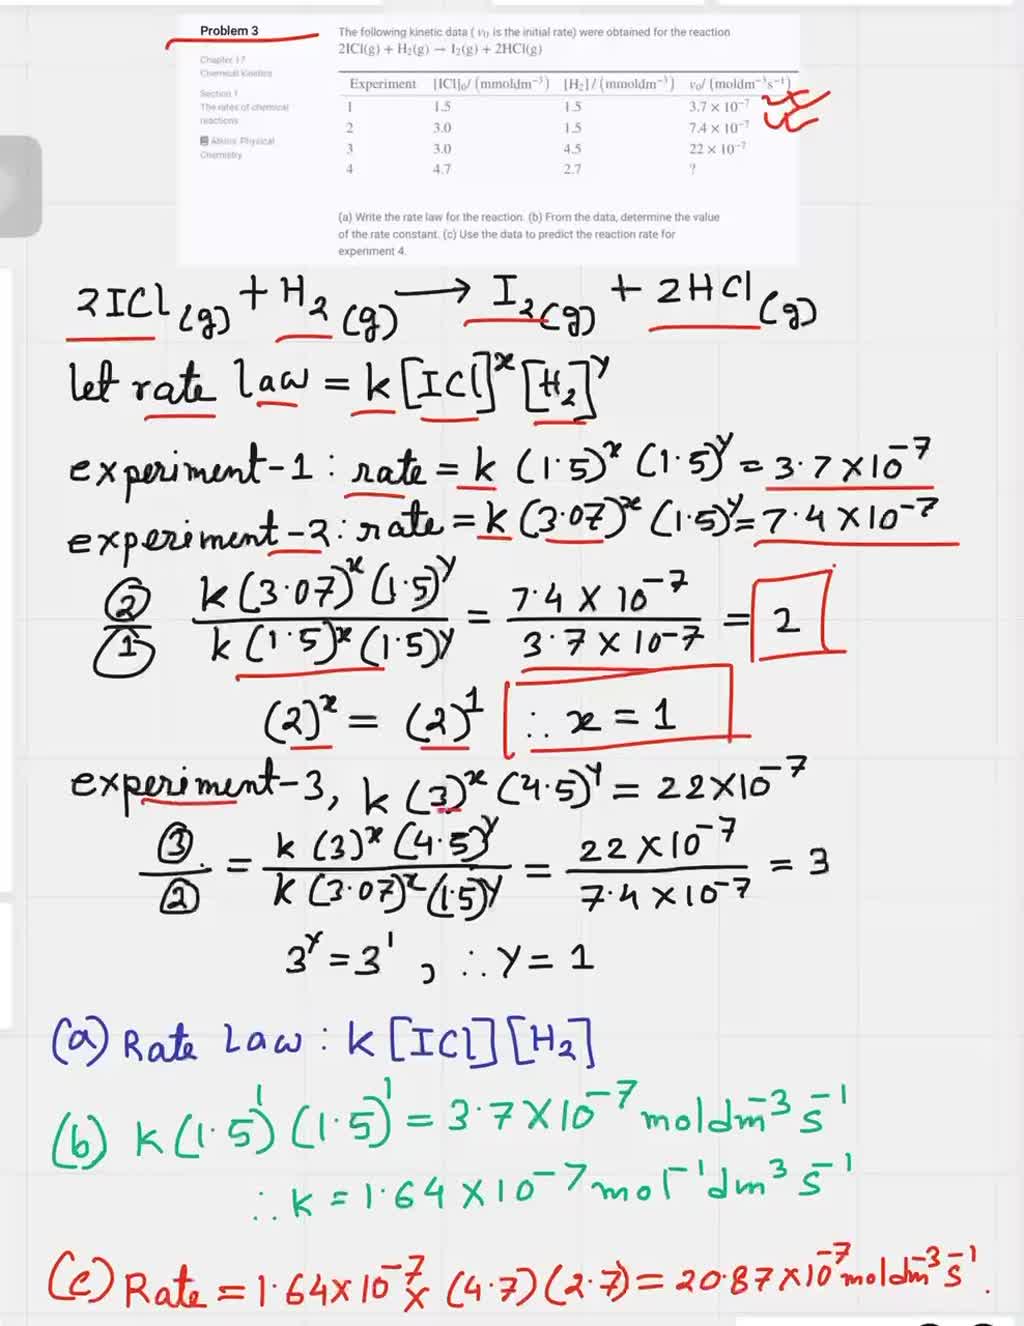 Problem 3
Chapter 17
Chemical Kinetics
Section 1
The rates of chemical
reactions
Atkins Physical
Chemistry
The following kinetic data ( v₀ is the initial rate) were obtained for the reaction
2ICl(g) + H₂(g) → I₂(g) + 2HCl(g)
Experiment [ICl]₀/ (mmoldm⁻³) [H₂]/ (mmoldm⁻³) v₀/ (moldm⁻³s⁻¹)
1 1.5 1.5 3.7 × 10⁻⁷
2 3.0 1.5 7.4 × 10⁻⁷
3 3.0 4.5 22 × 10⁻⁷
4 4.7 2.7 ?
(a) Write the rate law for the reaction. (b) From the data, determine the value
of the rate constant. (c) Use the data to predict the reaction rate for
experiment 4.
2ICl(g) + H₂(g) ⟶ I₂(g) + 2HCl(g)
let rate law = k[ICl]ˣ[H₂]ʸ
experiment-1 : rate = k (1.5)ˣ (1.5)ʸ = 3.7×10⁻⁷
experiment-2 : rate = k (3.07)ˣ (1.5)ʸ = 7.4×10⁻⁷
②/① k(3.07)ˣ(1.5)ʸ / k(1.5)ˣ(1.5)ʸ = 7.4 × 10⁻⁷ / 3.7 × 10⁻⁷ = 2
(2)ˣ = (2)¹ ∴ x = 1
experiment-3, k (3)ˣ (4.5)ʸ = 22×10⁻⁷
③/② = k (3)ˣ (4.5)ʸ / k (3.07)ˣ (1.5)ʸ = 22 × 10⁻⁷ / 7.4 × 10⁻⁷ = 3
3ʸ = 3¹ , ∴ y = 1
(a) Rate Law : k [ICl] [H₂]
(b) k(1.5)¹ (1.5)¹ = 3.7×10⁻⁷ moldm⁻³ s⁻¹
∴ k = 1.64 × 10⁻⁷ mol⁻¹ dm³ s⁻¹
(c) Rate = 1.64×10⁻⁷ × (4.7)(2.7) = 20.87×10⁻⁷ moldm⁻³ s⁻¹.